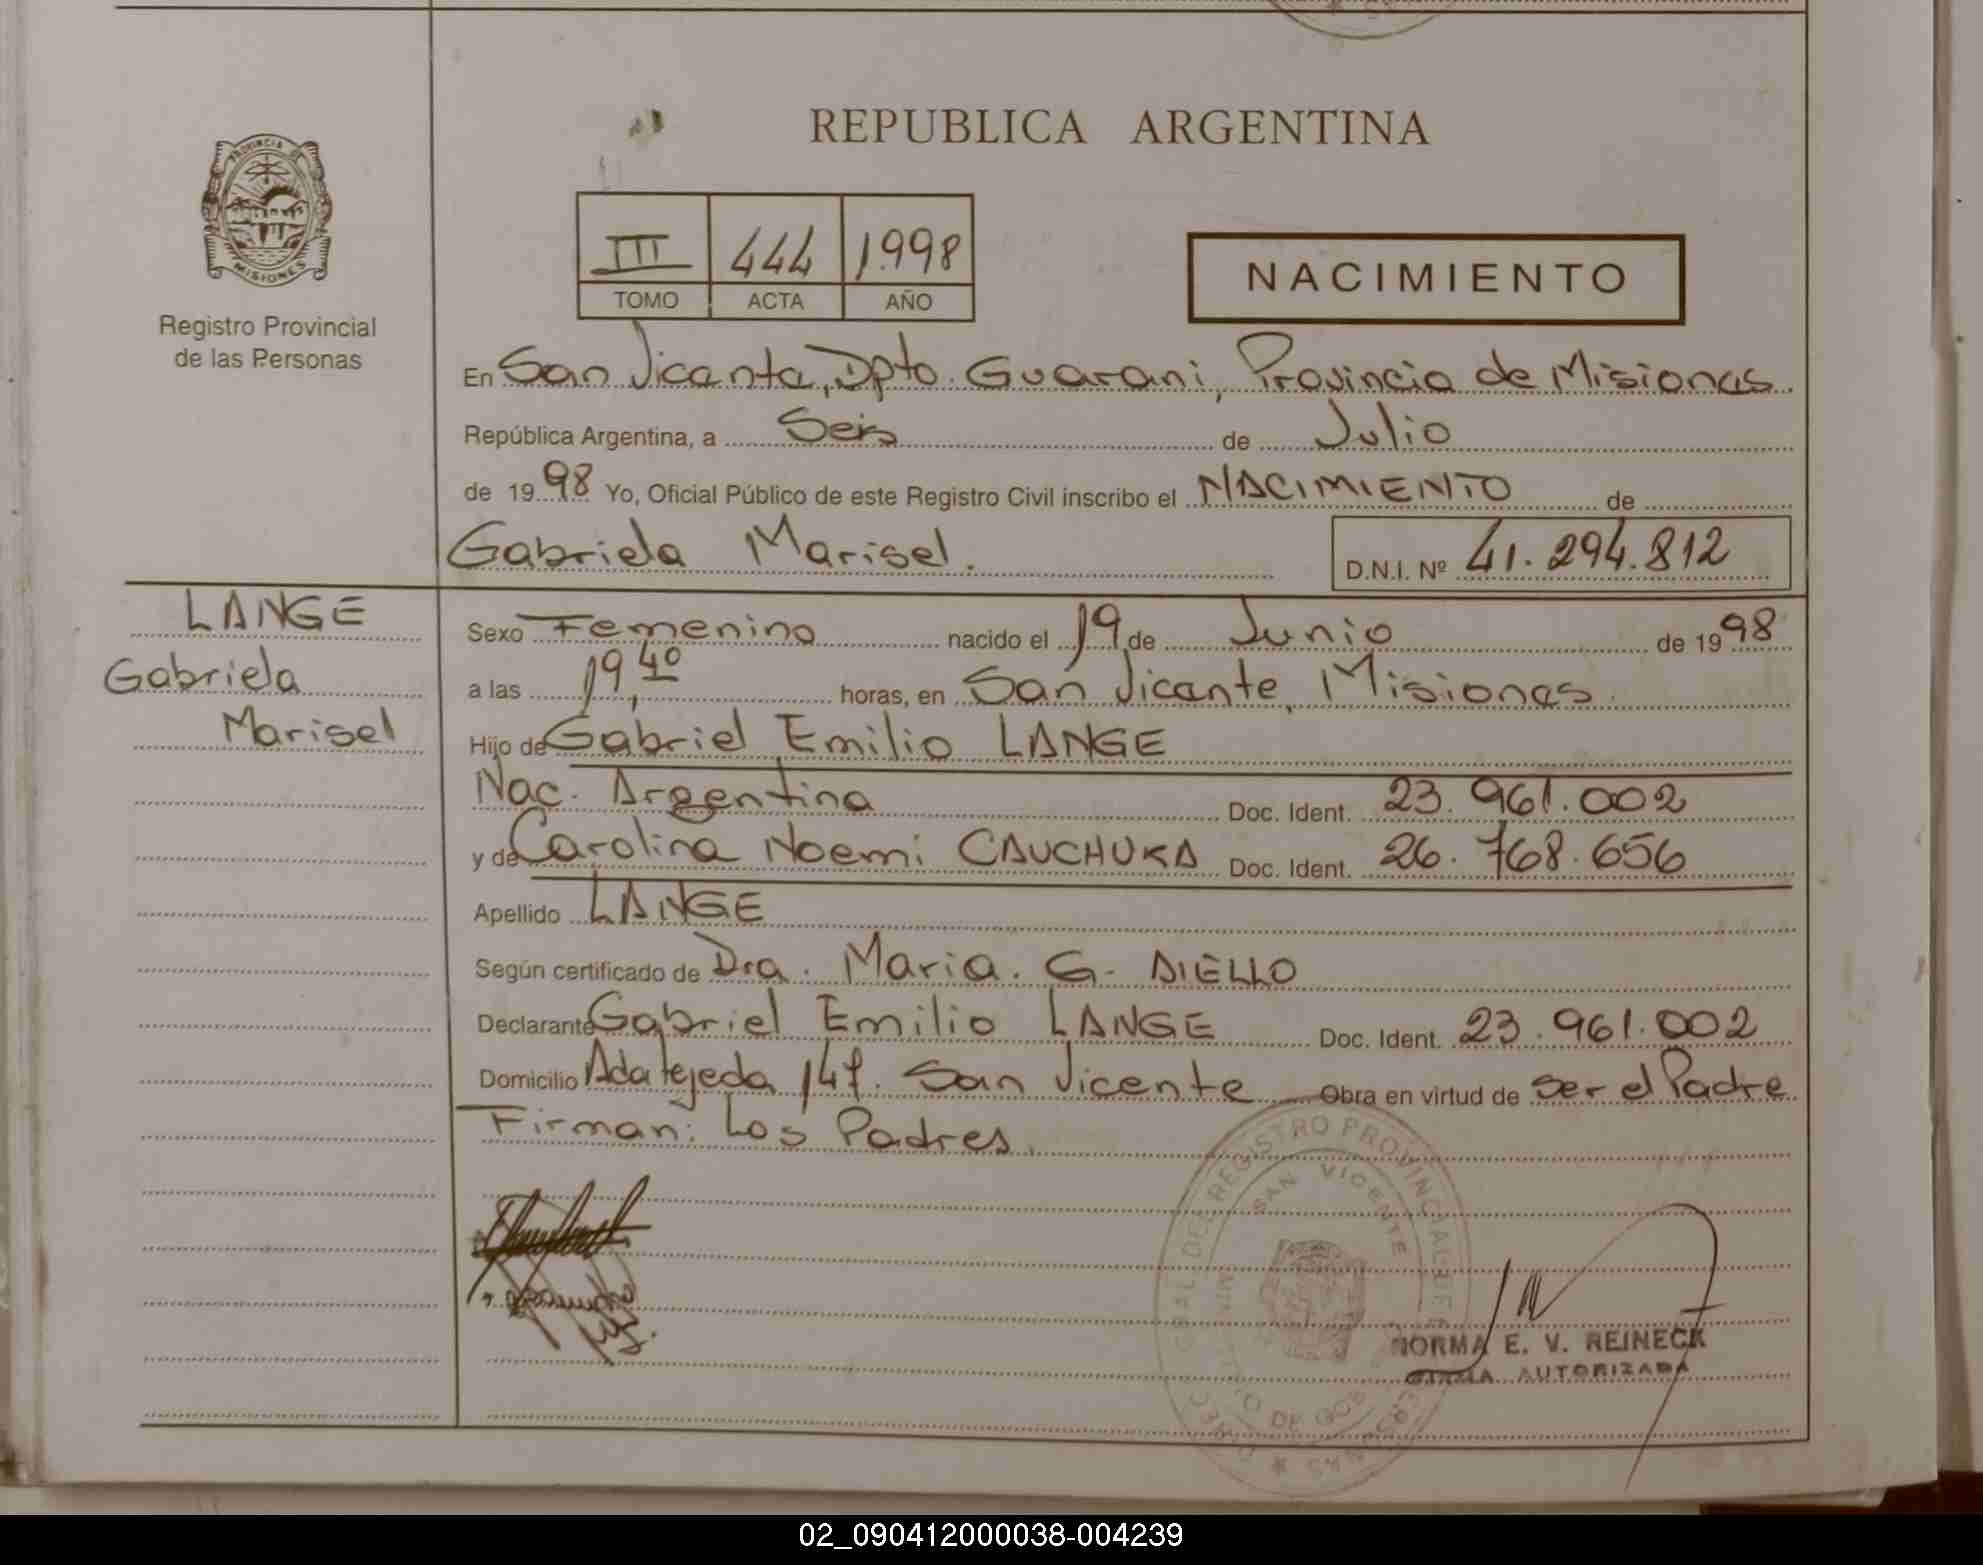 REPUBLICA ARGENTINA
PROVINCIA DE
MISIONES
Registro Provincial
de las Personas
III 444 1998
TOMO ACTA AÑO
NACIMIENTO
En San Vicente, Dpto. Guarani, Provincia de Misiones.
República Argentina, a Seis de Julio
de 1998 Yo, Oficial Público de este Registro Civil inscribo el NACIMIENTO de
Gabriela Marisel. D.N.I. Nº 41.294.812
LANGE
Gabriela
Marisel
Sexo Femenino nacido el 19 de Junio de 1998
a las 19,40 horas, en San Vicente, Misiones.
Hijo de Gabriel Emilio LANGE
Nac. Argentina Doc. Ident. 23.961.002
y de Carolina Noemi CAUCHUKA Doc. Ident. 26.768.656
Apellido LANGE
Según certificado de Dra. Maria. G. AIELLO
Declarante Gabriel Emilio LANGE Doc. Ident. 23.961.002
Domicilio Ada tejeda San Vicente Obra en virtud de ser el Padre
Firman: Los Padres.
REGISTRO PROVINCIAL DE
SAN VICENTE
NORMA E. V. REINECK
FIRMA AUTORIZADA
02_090412000038-004239